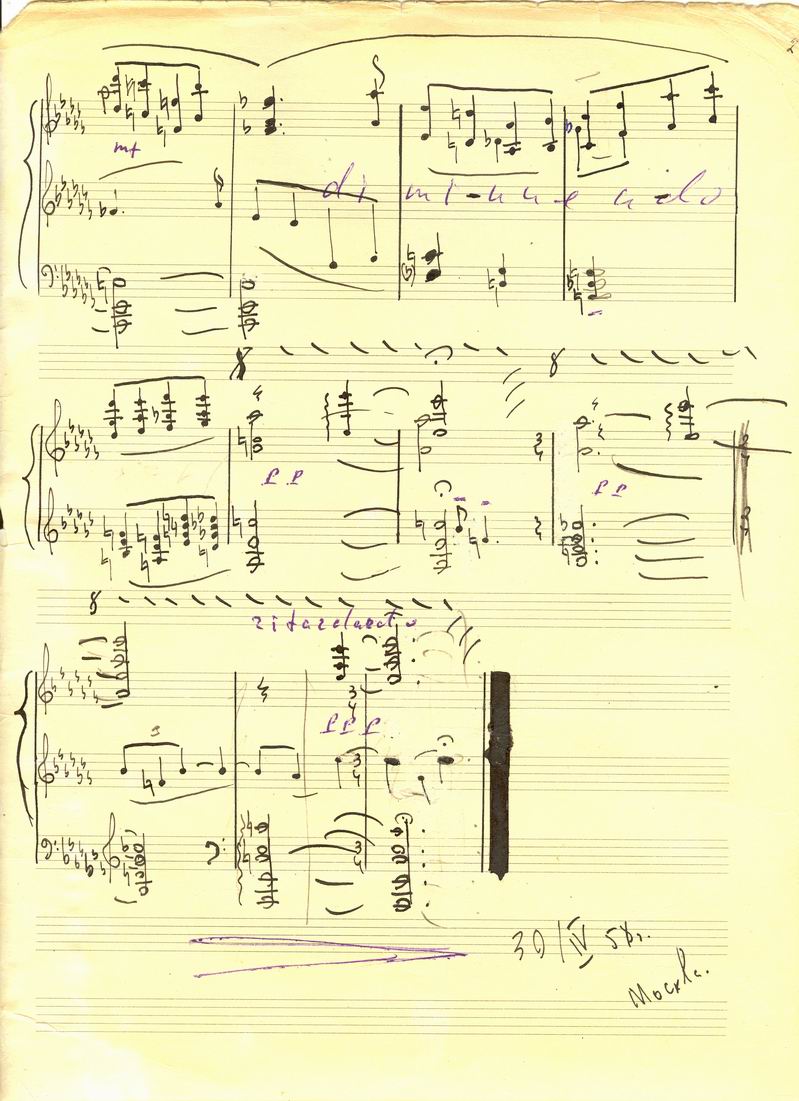 2
mf
di mi-nu e n-do
8
8
pp
pp
8
ritardando
3
ppp
30/IV 58г.
Москва.